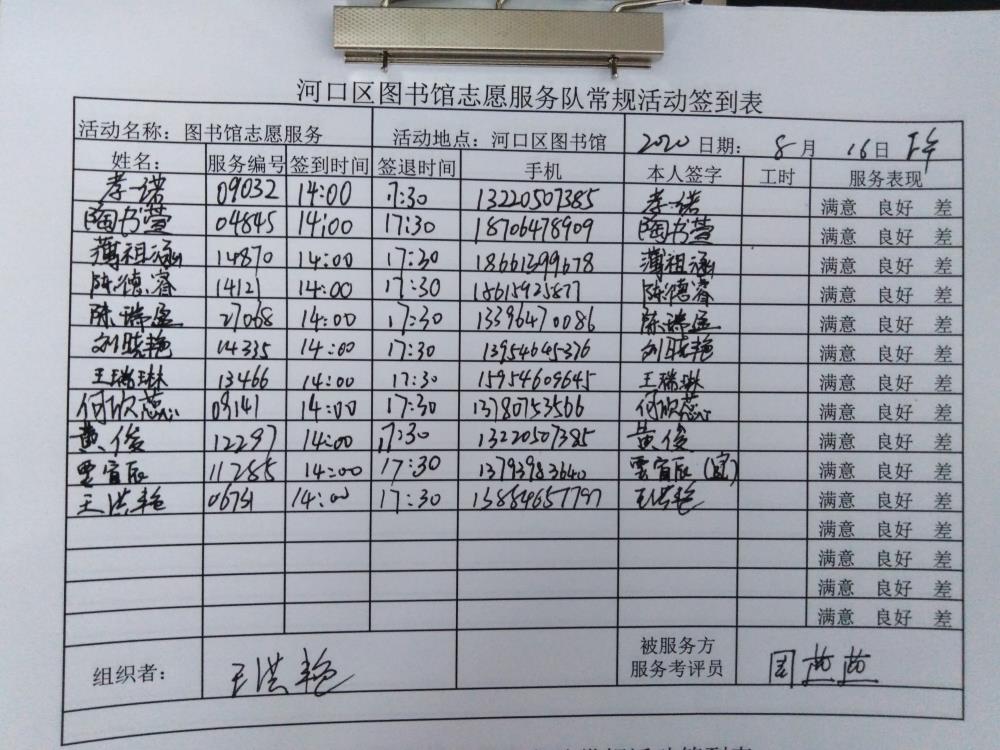 河口区图书馆志愿服务队常规活动签到表
活动名称：图书馆志愿服务 活动地点：河口区图书馆 2020 日期： 8 月 16 日 下午
姓名： 服务编号 签到时间 签退时间 手机 本人签字 工时 服务表现
09032 14:00 17:30 13220507385 满意 良好 差
陶书萱 04845 14:00 17:30 18706478909 陶书萱 满意 良好 差
薄祖涵 14870 14:00 17:30 18661399678 薄祖涵 满意 良好 差
陈德睿 14121 14:00 17:30 18615925877 陈德睿 满意 良好 差
陈瑞 27068 14:00 17:30 13396470086 陈瑞 满意 良好 差
刘晓艳 14335 14:00 17:30 13954645376 刘晓艳 满意 良好 差
王瑞琳 13466 14:00 17:30 15954609645 王瑞琳 满意 良好 差
何欣蕊 09141 14:00 17:30 13780753566 何欣蕊 满意 良好 差
黄俊 12297 14:00 17:30 13220507385 黄俊 满意 良好 差
11285 14:00 17:30 13793983640 满意 良好 差
王洪艳 06731 14:00 17:30 13854657797 王洪艳 满意 良好 差
满意 良好 差
满意 良好 差
满意 良好 差
满意 良好 差
组织者： 王洪艳 被服务方
服务考评员 周苗苗